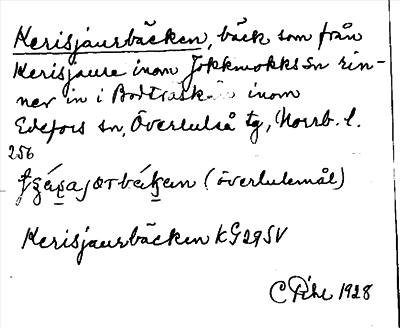 Kerisjaurbäcken, bäck som från
Kerisjaure inom Jokkmokks sn rin-
ner in i Bodträsket inom
Edefors sn, Överluleå tg, Norrb. l.
256
(överlulemål)
Kerisjaurbäcken KG 29 SV
C Pihl 1928